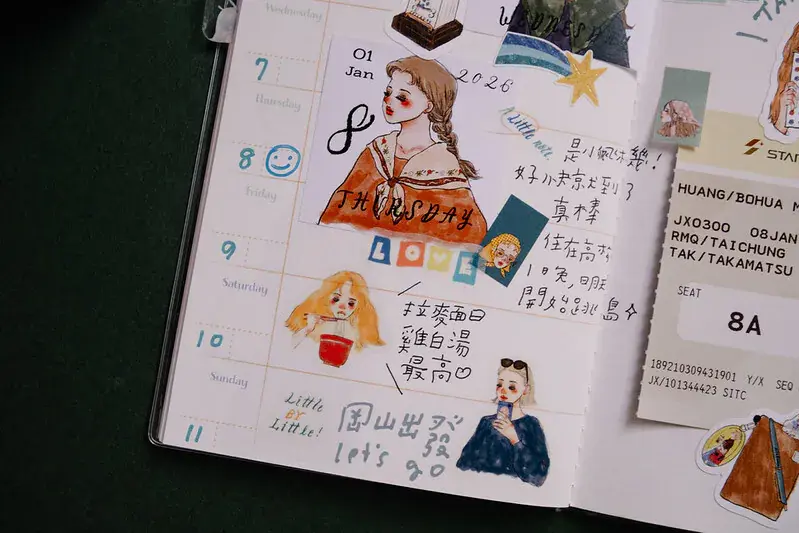 Wednesday
WEDNESDAY
7
Thursday
01
Jan
2026
8
8
THURSDAY
A Little note
是小楓休幾!
好小快京尤到了
真棒
住在高松
1日免,明天
開始跳島
LOVE
Friday
9
Saturday
拉麥面
雞白湯
最高♡
10
Sunday
Little
BY
Little!
岡山出發
let's go
11
STAR
HUANG/BOHUA M
JX0300 08JAN
RMQ/TAICHUNG
TAK/TAKAMATSU
SEAT
8A
189210309431901 Y/X SEQ
JX/101344423 SITC